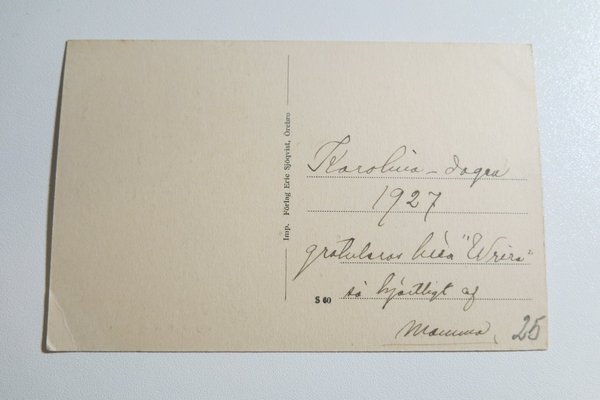 Imp. Förlag Eric Sjöqvist, Örebro
Karolina-dagen
1927
gratuleras
så hjärtligt af
Mamma
S 60
25